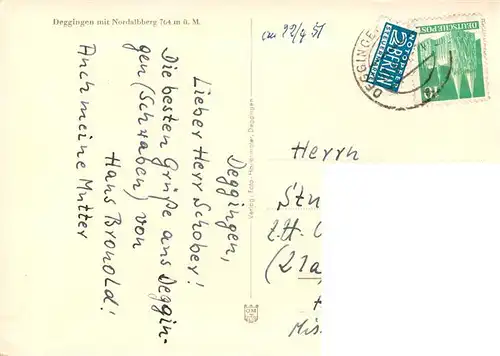 Deggingen mit Nordalbberg 764 m ü. M.
22/9 51
DEGGINGE
NOTOPFER
2 BERLIN
STEUERMARKE
DEUTSCHE POST
10
Deggingen,
Lieber Herr Schober!
Die besten Grüße aus Deggin-
gen (Schwaben) von
Hans Bronold!
Auch meine Mutter
Deggingen
Herrn
Stu
z. Zt.
(21a
Mis